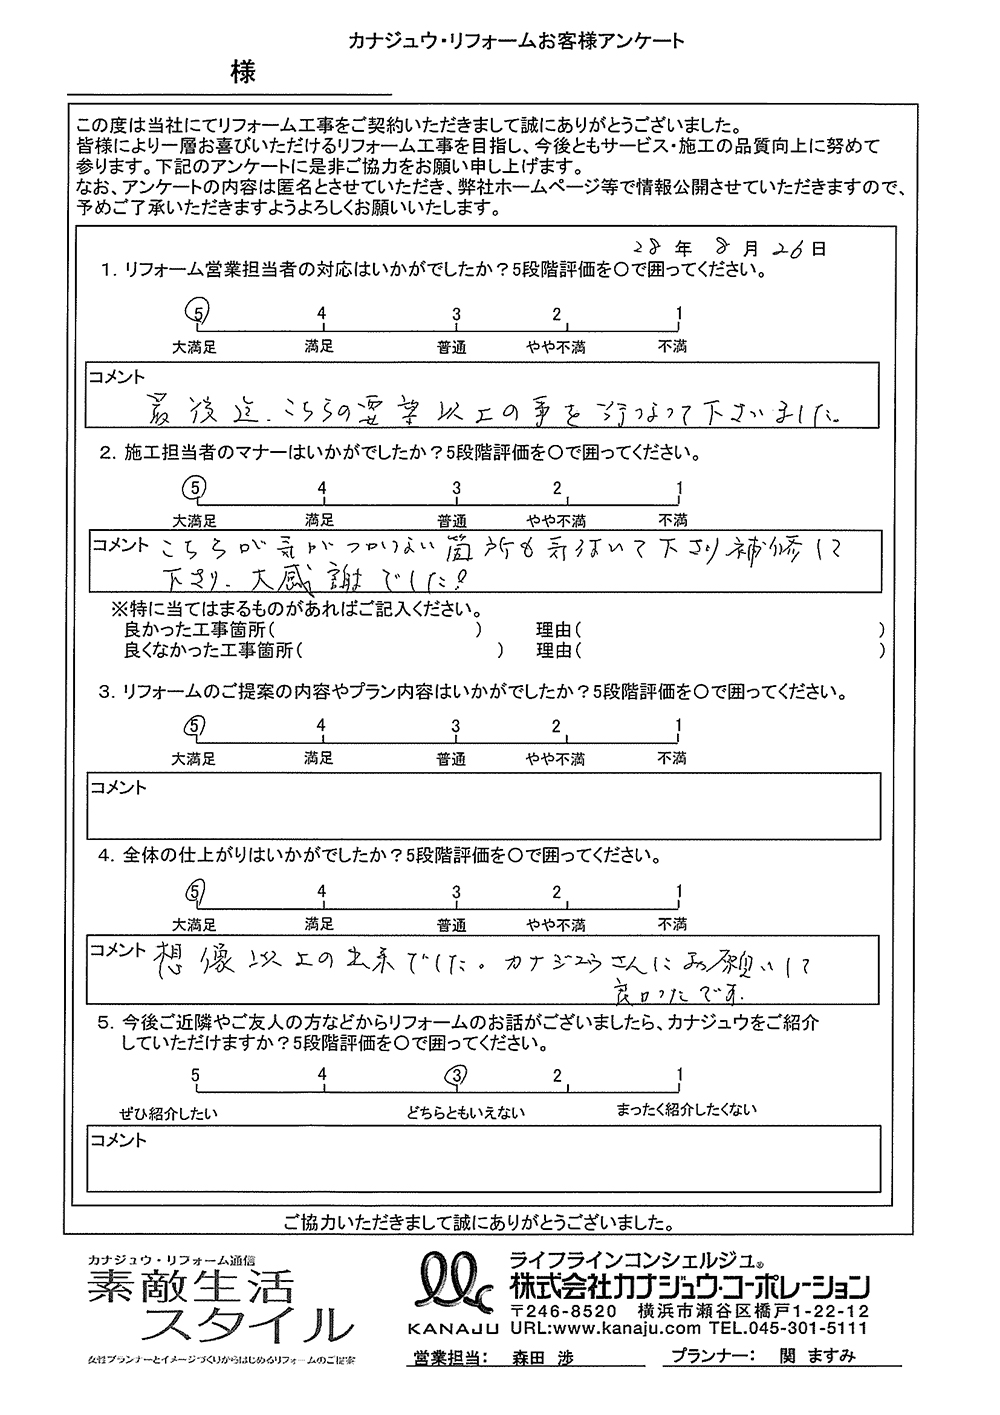 カナジュウ・リフォームお客様アンケート
様
この度は当社にてリフォーム工事をご契約いただきまして誠にありがとうございました。
皆様により一層お喜びいただけるリフォーム工事を目指し、今後ともサービス・施工の品質向上に努めて
参ります。下記のアンケートに是非ご協力をお願い申し上げます。
なお、アンケートの内容は匿名とさせていただき、弊社ホームページ等で情報公開させていただきますので、
予めご了承いただきますようよろしくお願いいたします。
28 年 8 月 26 日
1. リフォーム営業担当者の対応はいかがでしたか？5段階評価を○で囲ってください。
5 4 3 2 1
大満足 満足 普通 やや不満 不満
コメント
最後迄、こちらの要望以上の事を行なって下さいました。
2. 施工担当者のマナーはいかがでしたか？5段階評価を○で囲ってください。
5 4 3 2 1
大満足 満足 普通 やや不満 不満
コメント こちらが気がつかない箇所も気付いて下さり補修して
下さり、大感謝でした!
※特に当てはまるものがあればご記入ください。
良かった工事箇所( ) 理由( )
良くなかった工事箇所( ) 理由( )
3. リフォームのご提案の内容やプラン内容はいかがでしたか？5段階評価を○で囲ってください。
5 4 3 2 1
大満足 満足 普通 やや不満 不満
コメント
4. 全体の仕上がりはいかがでしたか？5段階評価を○で囲ってください。
5 4 3 2 1
大満足 満足 普通 やや不満 不満
コメント 想像以上の出来でした。カナジュウさんにお願いして
良かったです。
5. 今後ご近隣やご友人の方などからリフォームのお話がございましたら、カナジュウをご紹介
していただけますか？5段階評価を○で囲ってください。
5 4 3 2 1
ぜひ紹介したい どちらともいえない まったく紹介したくない
コメント
ご協力いただきまして誠にありがとうございました。
カナジュウ・リフォーム通信
素敵生活
スタイル
女性プランナーとイメージづくりからはじめるリフォームのご提案
KANAJU
ライフラインコンシェルジュ®
株式会社カナジュウ・コーポレーション
〒246-8520 横浜市瀬谷区橋戸1-22-12
URL:www.kanaju.com TEL.045-301-5111
営業担当: 森田 渉 プランナー: 関 ますみ